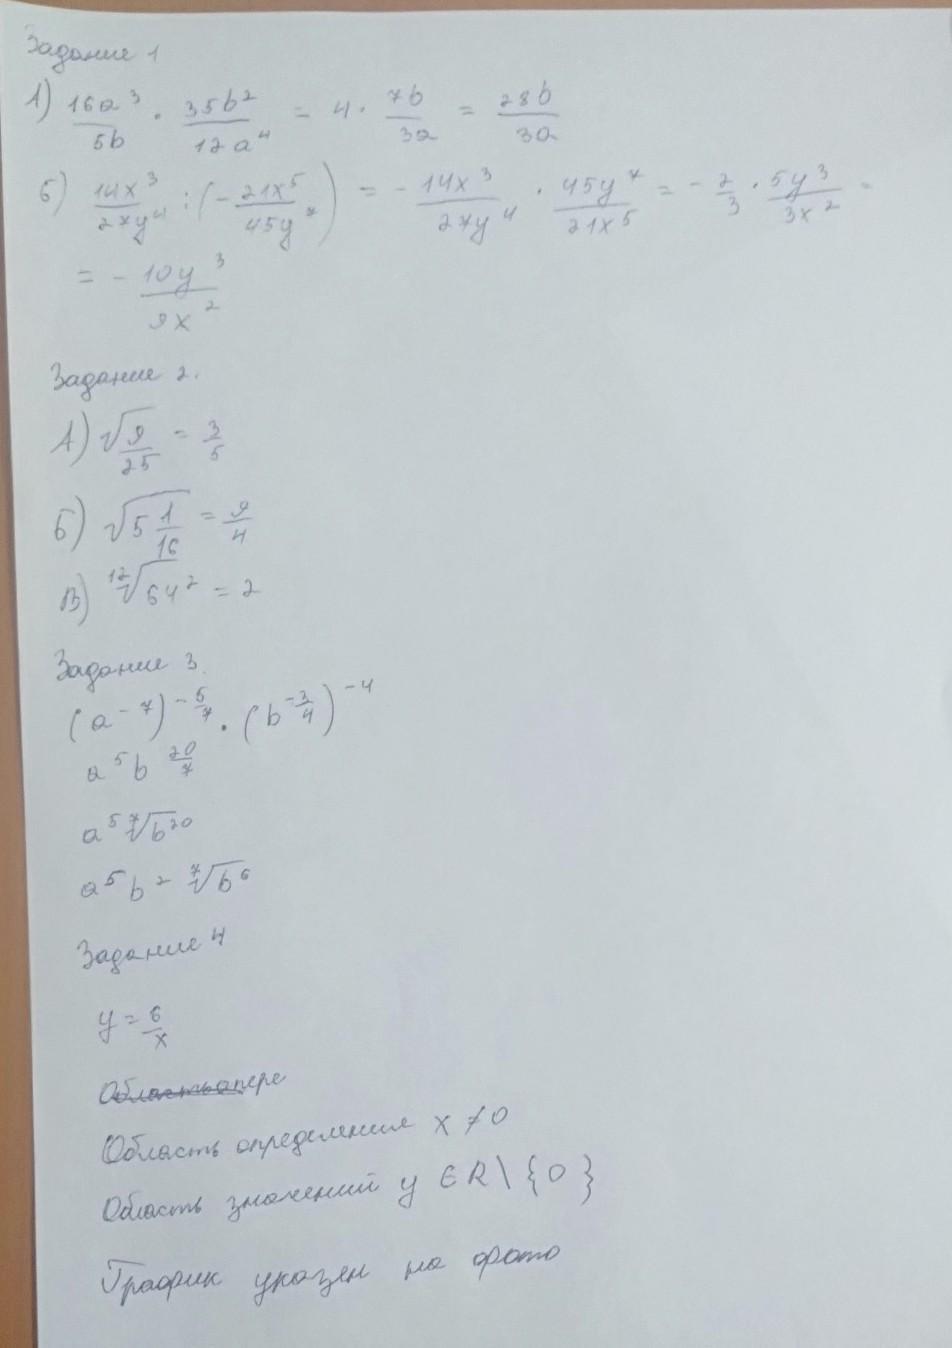 Задание 1
А) 16a³/5b · 35b²/12a⁴ = 4 · 7b/3a = 28b/3a
Б) 14x³/27y⁴ : (-21x⁵/45y⁷) = -14x³/27y⁴ · 45y⁷/21x⁵ = -2/3 · 5y³/3x² =
= -10y³/9x²
Задание 2.
А) √(9/25) = 3/5
Б) √(5 1/16) = 9/4
В) ¹²√64² = 2
Задание 3.
(a⁻⁷)^(-5/7) · (b^(-3/4))⁻⁴
a⁵b^(20/7)
a⁵ ⁷√b²⁰
a⁵b² ⁷√b⁶
Задание 4
y = 6/x
Область определения x ≠ 0
Область значений y ∈ R \ {0}
График указан на фото